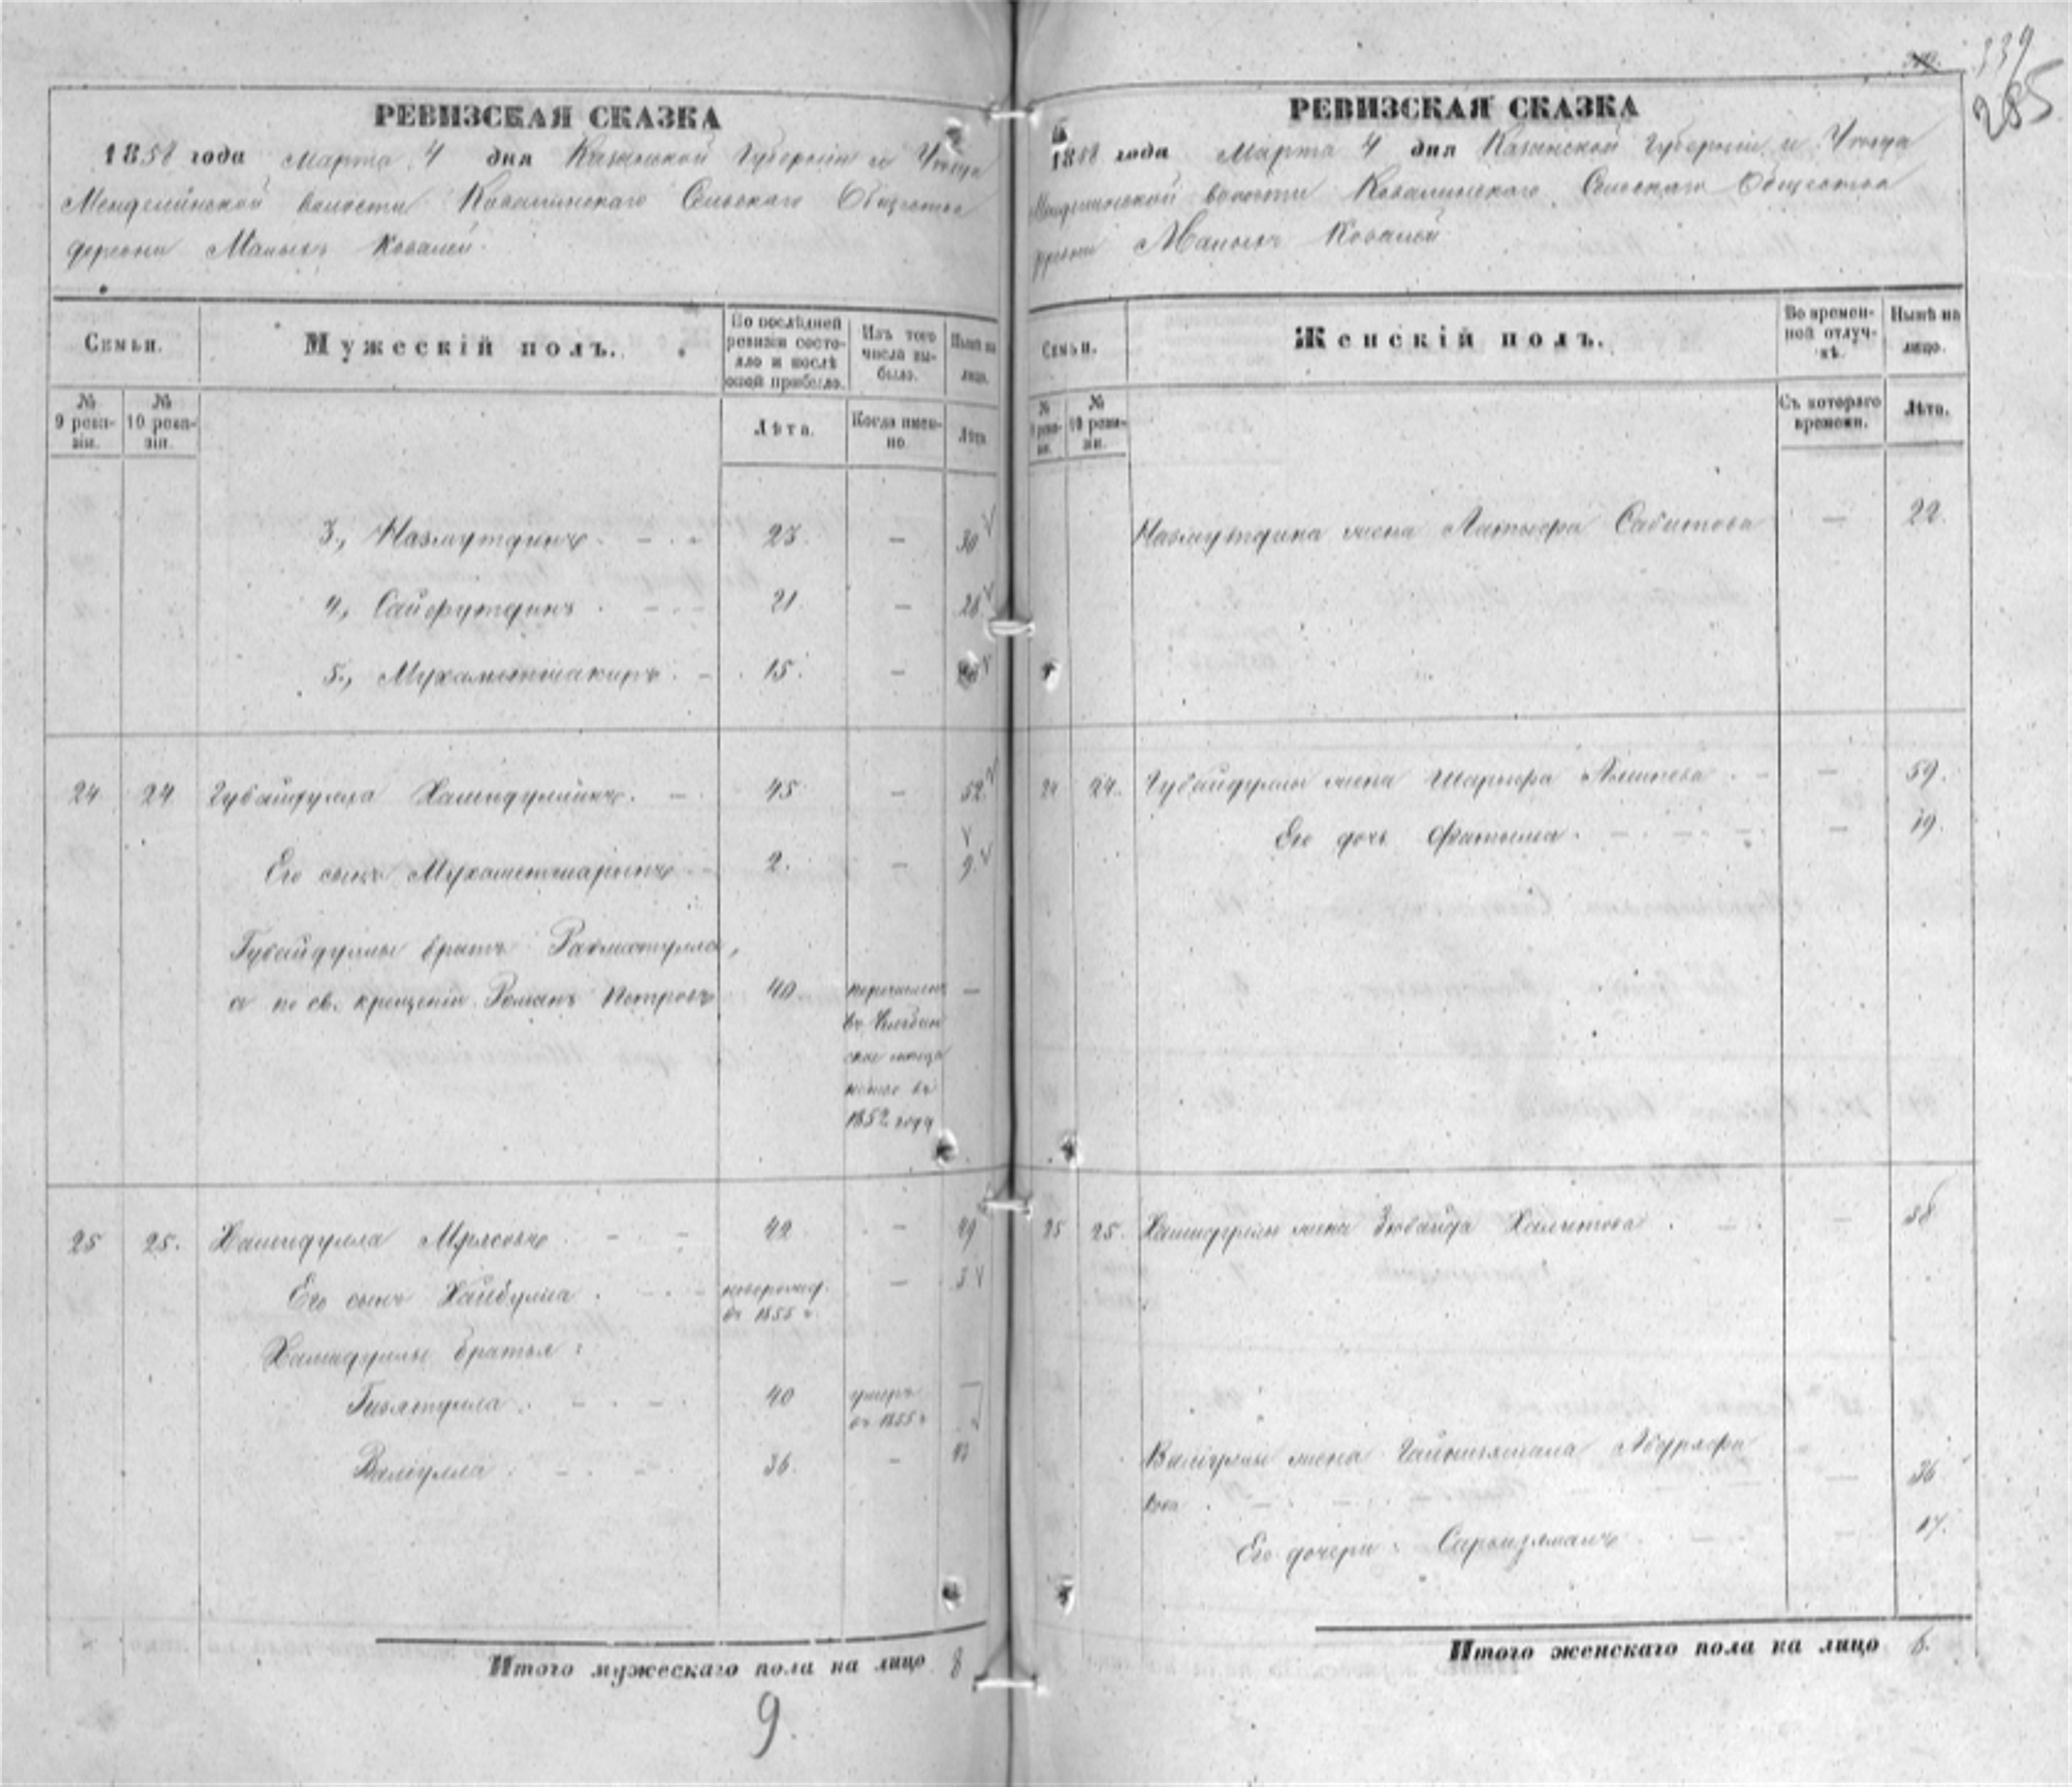 339
285
РЕВИЗСКАЯ СКАЗКА
1858 года Марта 4 дня Казанской Губерніи и Уезда
Менделинской волости Ковалинскаго Сельскаго Общества
деревни Малыхъ Ковалей.
Семьи.
Мужескій полъ.
По послѣдней ревизіи состояло и послѣ оной прибыло.
Изъ того числа выбыло.
Нынѣ на лицо.
№ 9 ревизіи.
№ 10 ревизіи.
Лѣта.
Когда именно.
Лѣта
3., Назмутдинъ 23. — 30
4., Сайфутдинъ 21. — 28
5., Мухаметшакиръ 15. —
24 24 Губайдулла Хамидуллинъ. 45 — 52
Его сынъ Мухаметшарипъ 2. — 9.
Губайдуллы братъ Рахматулла,
а по св. крещеніи Романъ Петровъ 40 перечислен —
въ
ское меща
нское въ
1852 году
25 25. Хамидулла 42 — 49
Его сынъ Хайбулла новорожд. — 3
въ 1855 г.
Хамидуллы братья:
Гизятулла 40 умеръ —
въ 1855 г
Валіулла 36. — 43
Итого мужескаго пола на лицо 8
9.
РЕВИЗСКАЯ СКАЗКА
1858 года Марта 4 дня Казанской Губерніи и Уезда
Менделинской волости Ковалинскаго Сельскаго Общества
деревни Малыхъ Ковалей
Семьи.
Женскій полъ.
Во временной отлучкѣ.
Нынѣ на лицо.
№ 9 ревизіи.
№ 10 ревизіи.
Съ котораго времени.
Лѣта.
Назмутдина жена Латыфа Сабитова — 22.
24 24. Губайдуллы жена Шарифа — 59.
Его дочь Фатыма. — 19.
25 25. Хамидуллы жена Зюбайда Халитова — 38
Валіуллы жена Гайнизямала Абдряфи
кова — 36
Его дочери: — 17.
Итого женскаго пола на лицо 6.